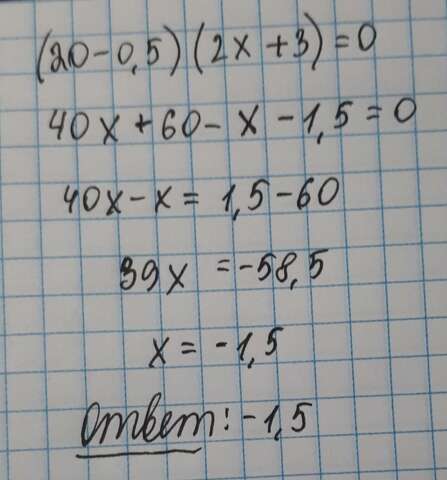 (20-0,5)(2x+3)=0
40x+60-x-1,5=0
40x-x=1,5-60
39x=-58,5
x=-1,5
Ответ:-1,5